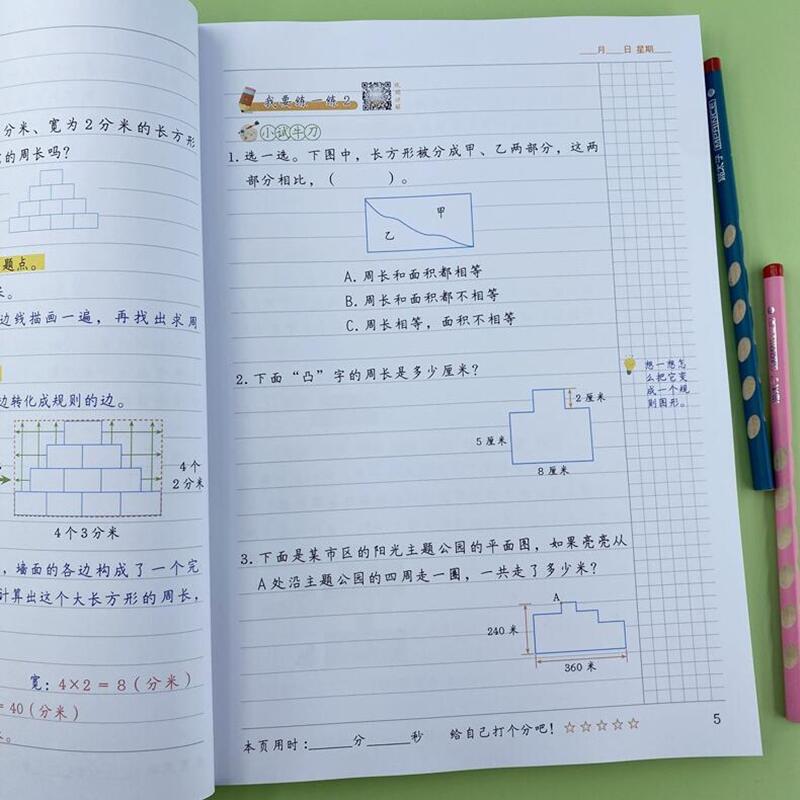 分米、宽为2分米的长方形
的周长吗?
题点。
长。
边线描画一遍，再找出求周
边转化成规则的边。
4个
2分米
4个3分米
，墙面的各边构成了一个完
计算出这个大长方形的周长，
宽: 4×2=8(分米)
=40(分米)
月 日 星期
我要练一练2
小试牛刀
1.选一选。下图中，长方形被分成甲、乙两部分，这两
部分相比，(　　)。
甲
乙
A.周长和面积都相等
B.周长和面积都不相等
C.周长相等，面积不相等
2.下面“凸”字的周长是多少厘米?
2厘米
5厘米
8厘米
想一想怎
么把它变
成一个规
则图形。
3.下面是某市区的阳光主题公园的平面图，如果亮亮从
A处沿主题公园的四周走一圈，一共走了多少米?
A
240米
360米
本页用时:____分____秒 给自己打个分吧! ☆☆☆☆☆
5